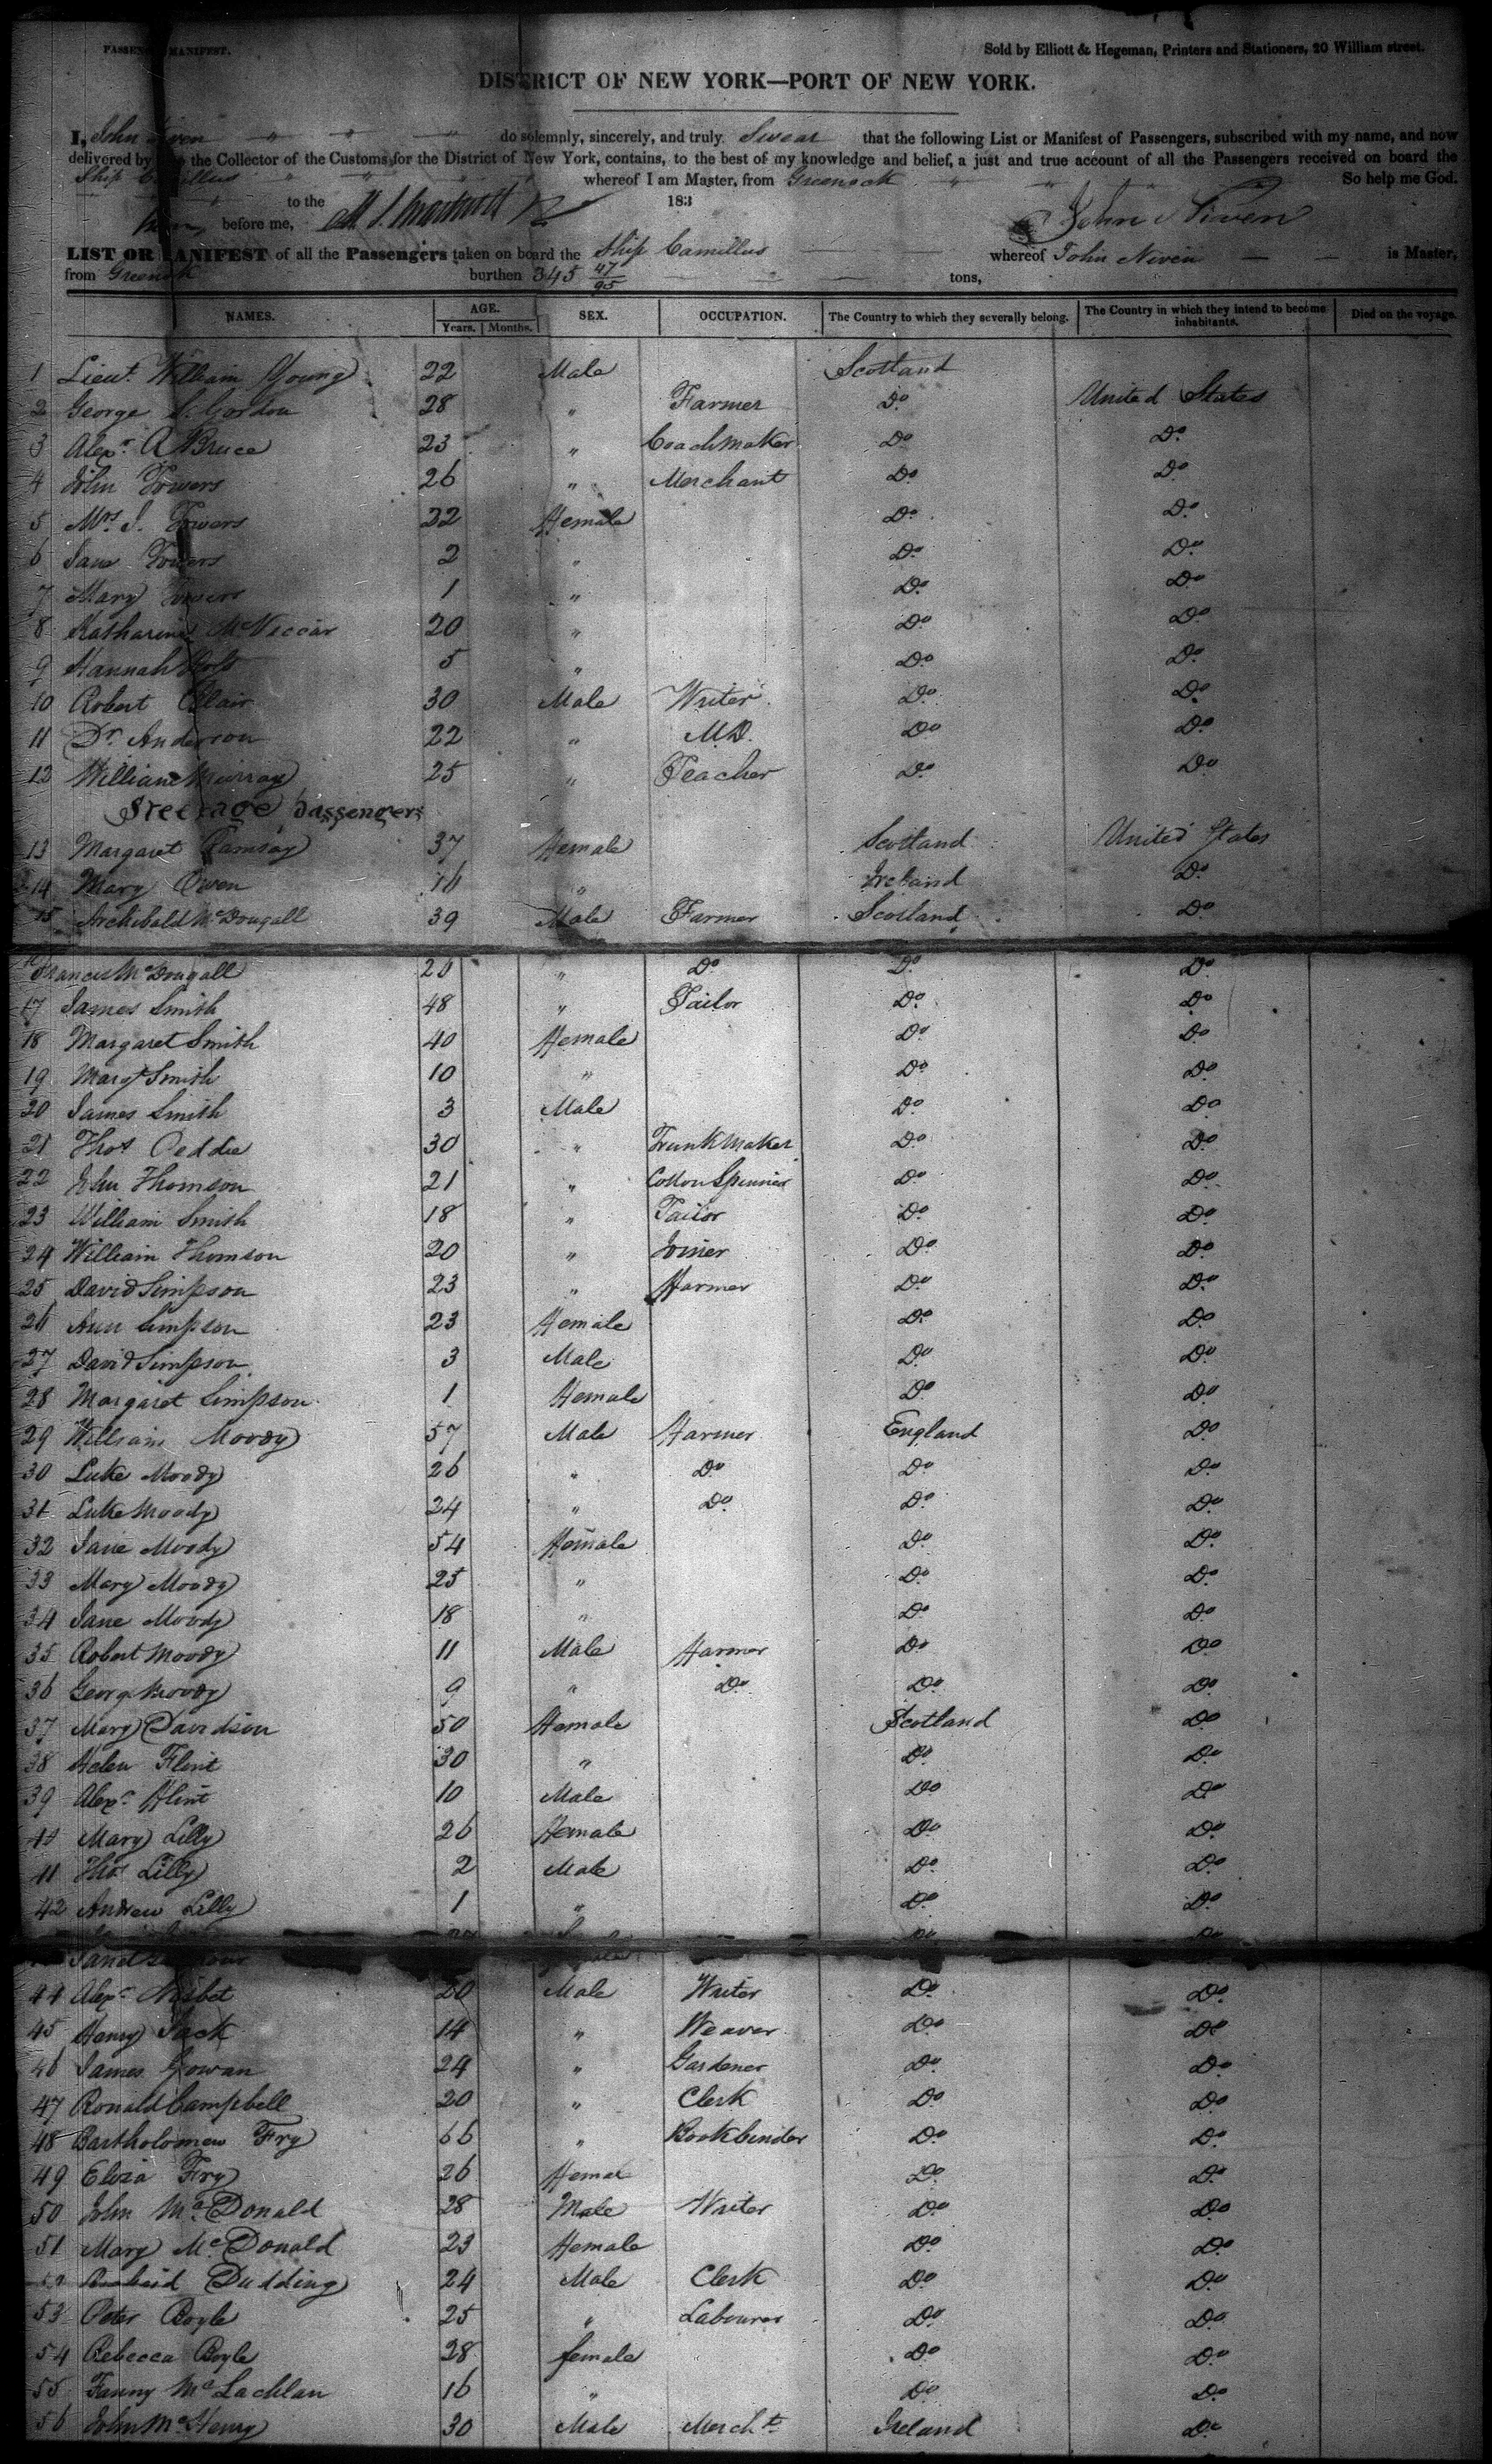 PASSENGER MANIFEST.
Sold by Elliott & Hegeman, Printers and Stationers, 20 William street.
DISTRICT OF NEW YORK—PORT OF NEW YORK.
I, John Niven " " " do solemnly, sincerely, and truly Swear that the following List or Manifest of Passengers, subscribed with my name, and now
delivered by me to the Collector of the Customs for the District of New York, contains, to the best of my knowledge and belief, a just and true account of all the Passengers received on board the
Ship Camillus " " " whereof I am Master, from Greenock " " " So help me God.
to the 183
before me, John Niven
LIST OR MANIFEST of all the Passengers taken on board the Ship Camillus whereof John Niven is Master,
from Greenock burthen 345 47/95 tons,
NAMES. AGE. SEX. OCCUPATION. The Country to which they severally belong. The Country in which they intend to become inhabitants. Died on the voyage.
Years. Months.
1 Lieut. William Young 22 Male Scotland
2 George S. Gordon 28 " Farmer Do United States
3 Alexr. A Bruce 23 " Coachmaker Do Do
4 John Towers 26 " Merchant Do Do
5 Mrs J. Towers 22 Female Do Do
6 Jane Towers 2 " Do Do
7 Mary Towers 1 " Do Do
8 Katharine 20 " Do Do
9 Hannah 5 " Do Do
10 Robert Blair 30 Male Writer Do Do
11 Dr. Anderson 22 " M.D. Do Do
12 William Murray 25 " Teacher Do Do
Steerage passengers
13 Margaret Ramsay 37 Female Scotland United States
14 Mary Owen 16 " Ireland Do
15 Archibald McDougall 39 Male Farmer Scotland Do
16 Francis McDougall 20 " Do Do Do
17 James Smith 48 " Tailor Do Do
18 Margaret Smith 40 Female Do Do
19 Margt Smith 10 " Do Do
20 James Smith 3 Male Do Do
21 Thos Oeddie 30 " Trunkmaker Do Do
22 John Thomson 21 " Cotton Spinner Do Do
23 William Smith 18 " Tailor Do Do
24 William Thomson 20 " Joiner Do Do
25 David Simpson 23 " Farmer Do Do
26 Ann Simpson 23 Female Do Do
27 David Simpson 3 Male Do Do
28 Margaret Simpson 1 Female Do Do
29 William Moody 57 Male Farmer England Do
30 Luke Moody 26 " Do Do Do
31 Luke Moody 24 " Do Do Do
32 Jane Moody 54 Female Do Do
33 Mary Moody 25 " Do Do
34 Jane Moody 18 " Do Do
35 Robert Moody 11 Male Farmer Do Do
36 George Moody 9 " Do Do Do
37 Mary Davidson 50 Female Scotland Do
38 Helen Flint 30 " Do Do
39 Alexr. Flint 10 Male Do Do
40 Mary Lilly 26 Female Do Do
41 Thos Lilly 2 Male Do Do
42 Andrew Lilly 1 " Do Do
Janet Do Do
44 Alexr. Nisbet 20 Male Writer Do Do
45 Henry Jack 14 " Weaver Do Do
46 James Gowan 24 " Gardener Do Do
47 Ronald Campbell 20 " Clerk Do Do
48 Bartholomew Fry 66 " Bookbinder Do Do
49 Eliza Fry 26 Femal Do Do
50 John McDonald 28 Male Writer Do Do
51 Mary McDonald 23 Female Do Do
52 Dudding 24 Male Clerk Do Do
53 Peter Boyle 25 " Labourer Do Do
54 Rebecca Boyle 28 female Do Do
55 Fanny McLachlan 16 " Do Do
56 John McHenry 30 Male Mercht Ireland Do